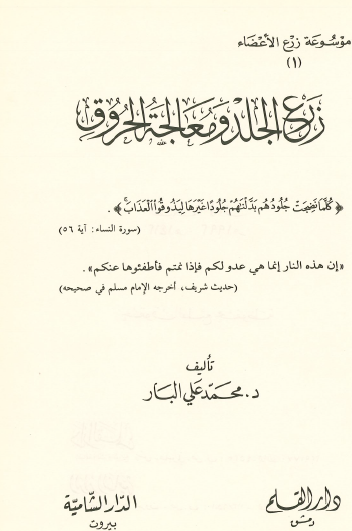 موسوعة زرع الأعضاء
(١)
زرع الجلد ومعالجة الحروق
﴿كُلَّمَا نَضِجَتْ جُلُودُهُم بَدَّلْنَاهُمْ جُلُودًا غَيْرَهَا لِيَذُوقُوا الْعَذَابَ﴾.
(سورة النساء: آية ٥٦)
«إن هذه النار إنما هي عدو لكم فإذا نمتم فأطفئوها عنكم».
(حديث شريف، أخرجه الإمام مسلم في صحيحه)
تأليف
د. محمد علي البار
دار القلم الدار الشامية
دمشق بيروت